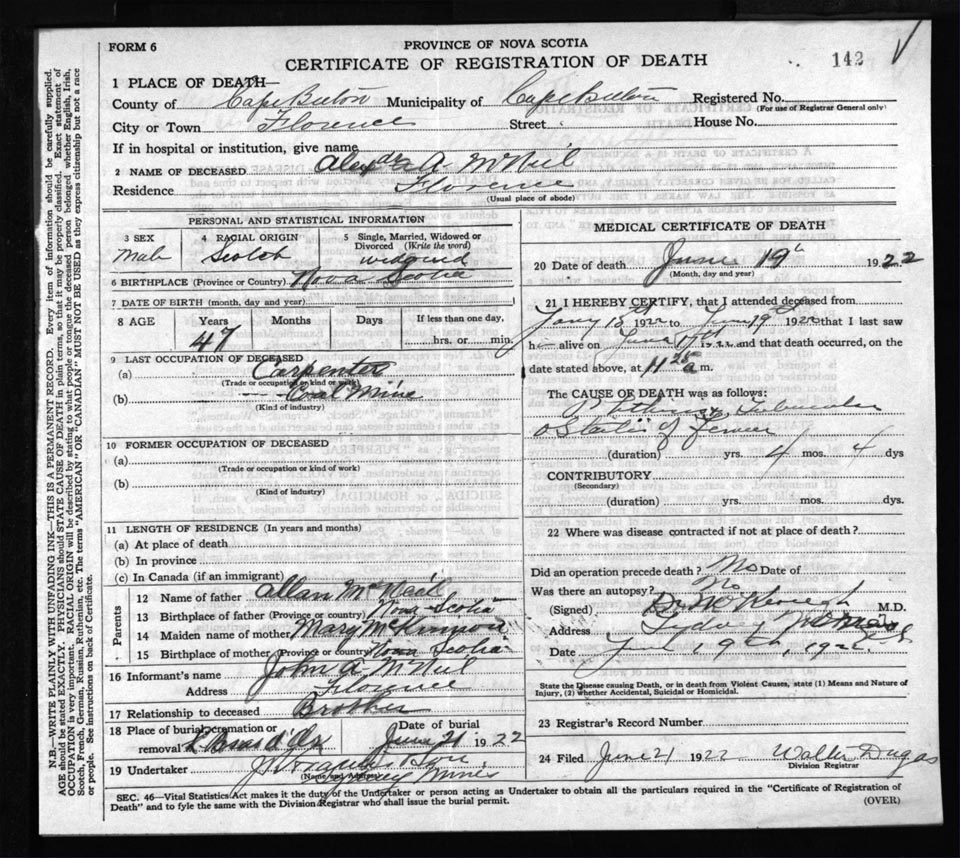 FORM 6
PROVINCE OF NOVA SCOTIA
CERTIFICATE OF REGISTRATION OF DEATH
142
1 PLACE OF DEATH—
County of Cape Breton Municipality of Cape Breton Registered No.
(For use of Registrar General only)
City or Town Florence Street House No.
If in hospital or institution, give name
2 NAME OF DECEASED Alexdr A. McNeil
Residence Florence
(Usual place of abode)
PERSONAL AND STATISTICAL INFORMATION
3 SEX 4 RACIAL ORIGIN 5 Single, Married, Widowed or Divorced (Write the word)
Male Scotch widowed
6 BIRTHPLACE (Province or Country) Nova Scotia
7 DATE OF BIRTH (month, day and year)
8 AGE Years Months Days If less than one day,
47 hrs. or min.
9 LAST OCCUPATION OF DECEASED
(a) Carpenter
(Trade or occupation or kind of work)
(b) Coal Mine
(Kind of industry)
10 FORMER OCCUPATION OF DECEASED
(a)
(Trade or occupation or kind of work)
(b)
(Kind of industry)
11 LENGTH OF RESIDENCE (In years and months)
(a) At place of death
(b) In province
(c) In Canada (if an immigrant)
Parents
12 Name of father Allan McNeil
13 Birthplace of father (Province or country) Nova Scotia
14 Maiden name of mother Mary McKinnon
15 Birthplace of mother (Province or country) Nova Scotia
16 Informant's name John A. McNeil
Address Florence
17 Relationship to deceased Brother
18 Place of burial, cremation or removal Bras d'Or Date of burial June 21 1922
19 Undertaker
(Name and address)
Sydney Mines
MEDICAL CERTIFICATE OF DEATH
20 Date of death June 19th 1922
(Month, day and year)
21 I HEREBY CERTIFY, that I attended deceased from
1922 to June 19th 1922 that I last saw
h alive on June 17th 1922 and that death occurred, on the
date stated above, at 11 a m.
The CAUSE OF DEATH was as follows:
of
(duration) yrs. 4 mos. 4 dys
CONTRIBUTORY
(Secondary)
(duration) yrs. mos. dys.
22 Where was disease contracted if not at place of death?
Did an operation precede death? No Date of
Was there an autopsy? No
(Signed) M.D.
Address Sydney Mines
Date June 19th, 1922
State the Disease causing Death, or in death from Violent Causes, state (1) Means and Nature of
Injury, (2) whether Accidental, Suicidal or Homicidal.
23 Registrar's Record Number
24 Filed June 21 1922 Walter Dugas
Division Registrar
SEC. 46—Vital Statistics Act makes it the duty of the Undertaker or person acting as Undertaker to obtain all the particulars required in the "Certificate of Registration of
Death" and to fyle the same with the Division Registrar who shall issue the burial permit.
(OVER)
N.B.—WRITE PLAINLY WITH UNFADING INK—THIS IS A PERMANENT RECORD. Every item of information should be carefully supplied.
AGE should be stated EXACTLY. PHYSICIANS should STATE CAUSE OF DEATH in plain terms, so that it may be properly classified. Exact statement of
OCCUPATION is very important. RACIAL ORIGIN will be described by stating to what people or tongue the deceased person belonged whether English, Irish,
Scotch, French, German, Russian, Ruthenian, etc. The terms "AMERICAN" OR "CANADIAN" MUST NOT BE USED as they express citizenship but not a race
or people. See instructions on back of Certificate.